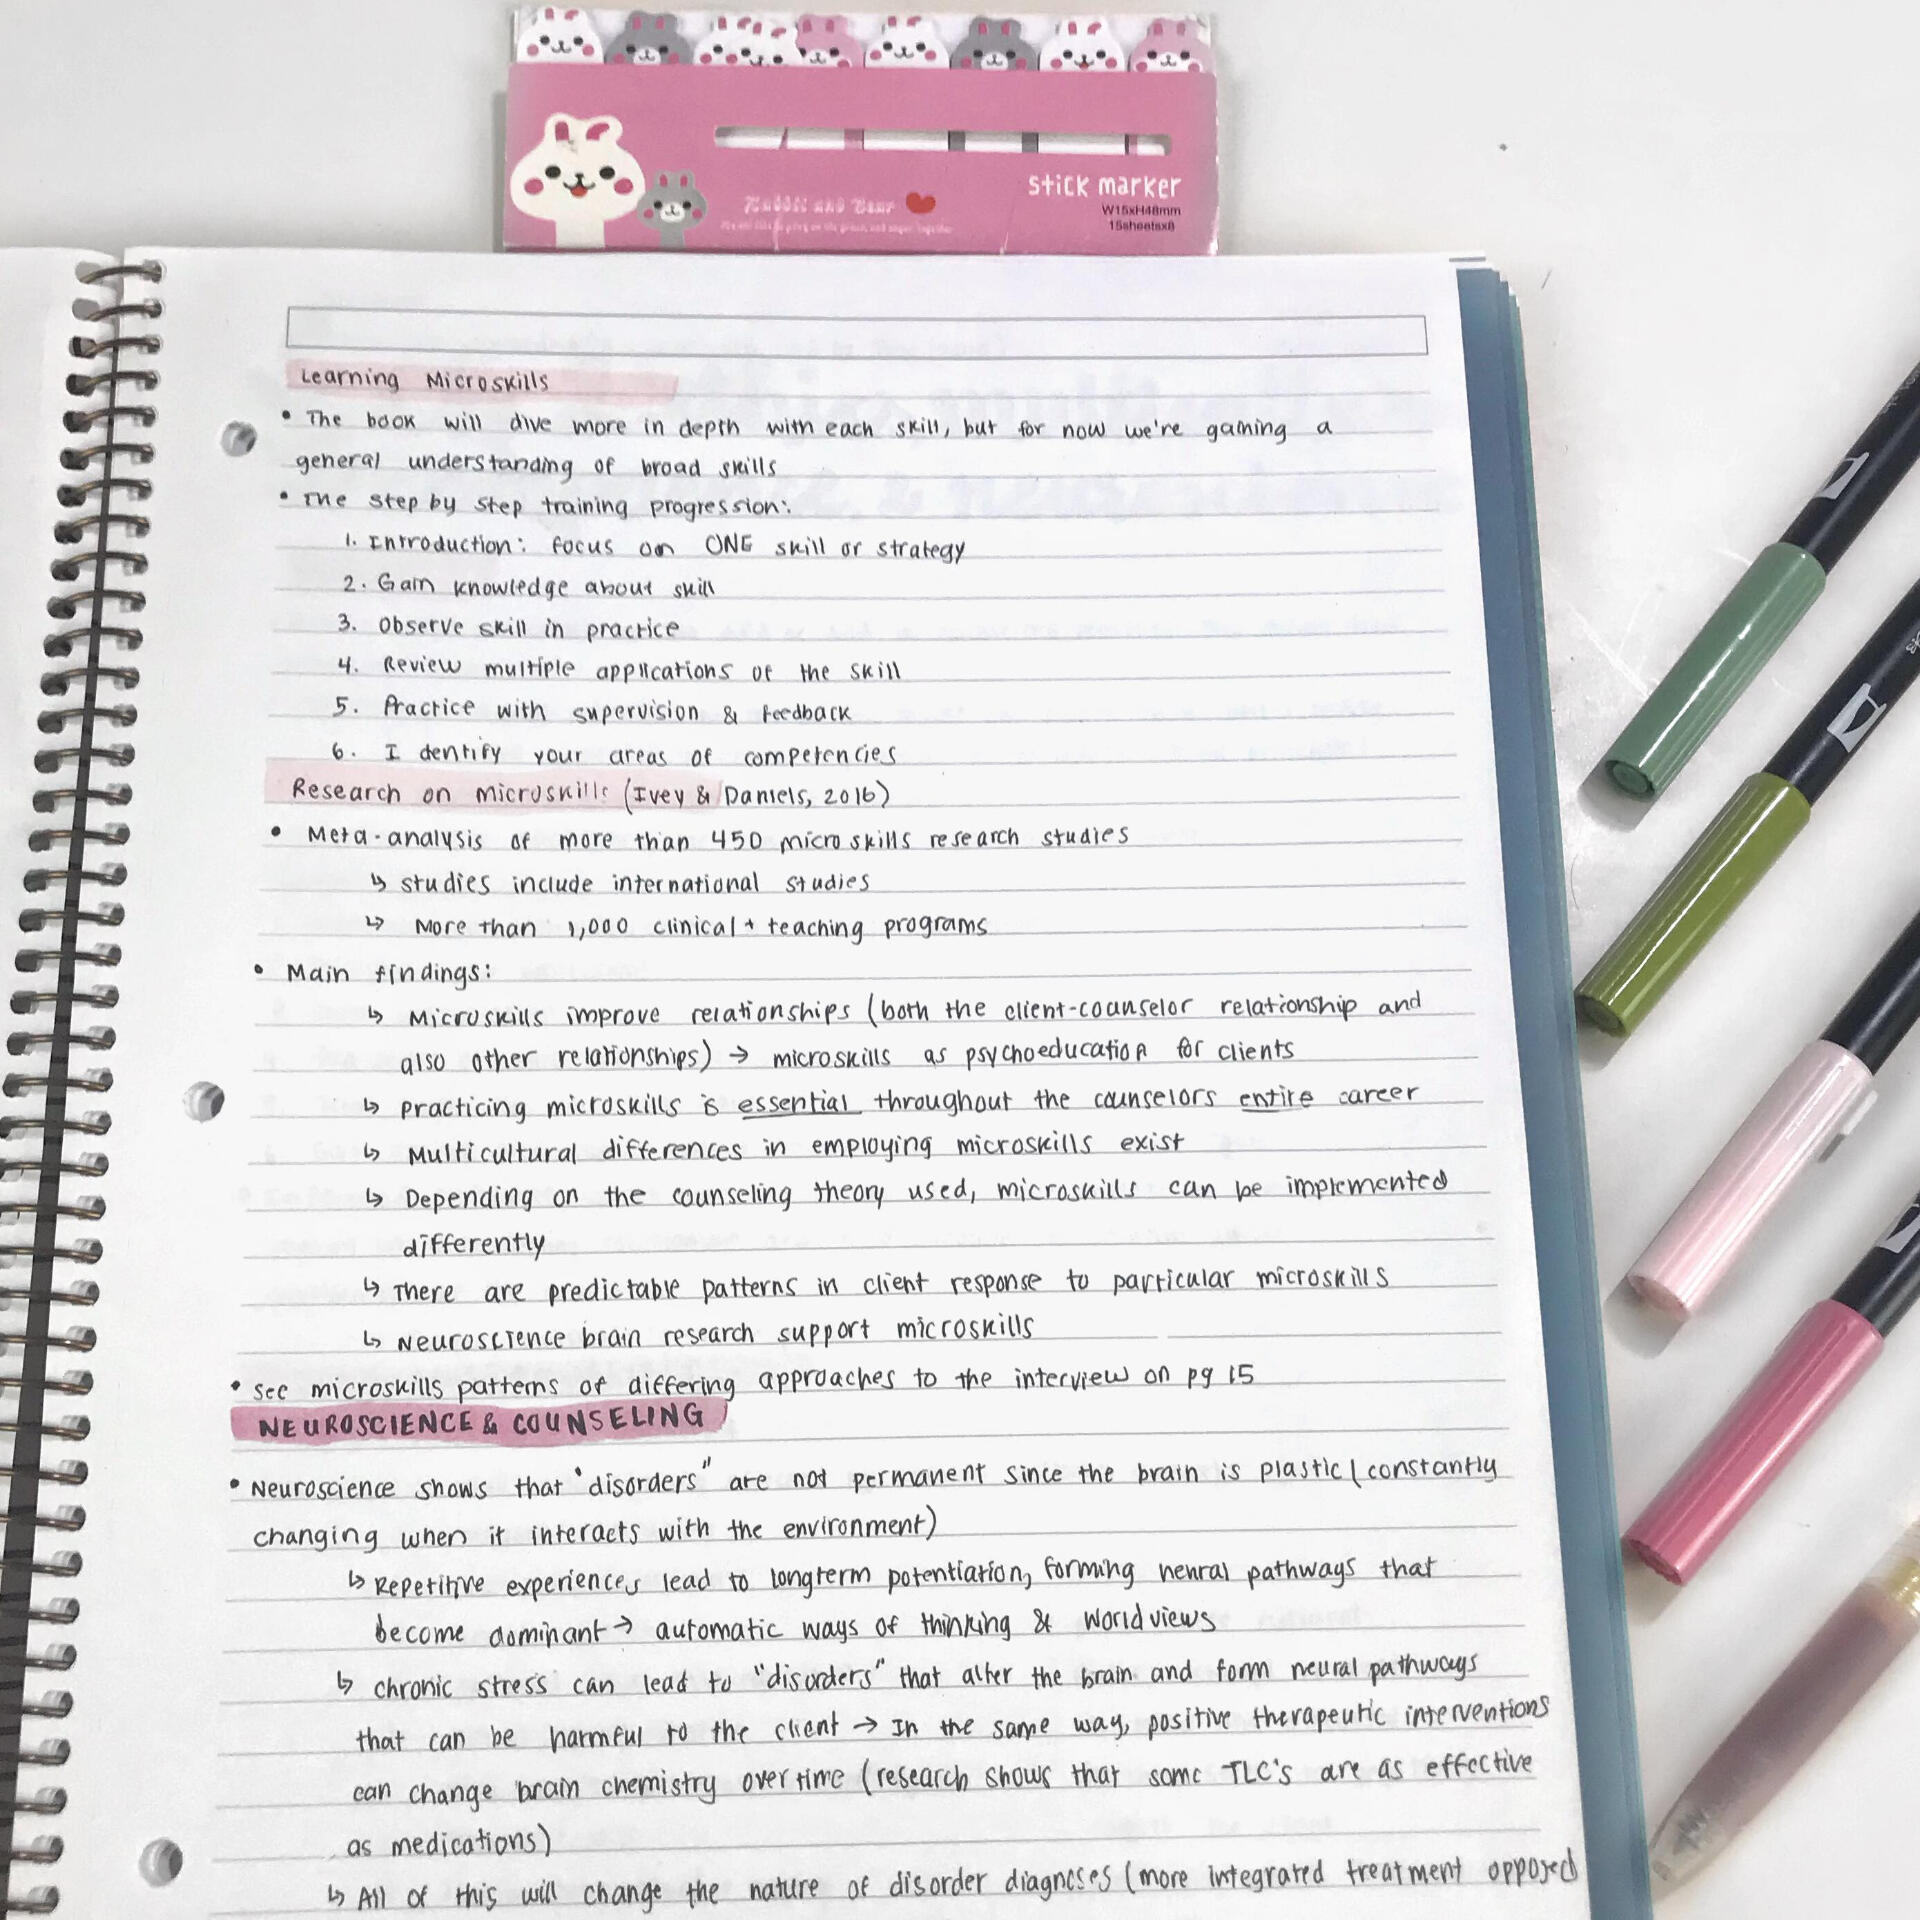 stick marker
Rabbit and Bear
W15xH48mm
15sheetsx8
Learning Microskills
• The book will dive more in depth with each skill, but for now we're gaining a
general understanding of broad skills
• The step by step training progression:
1. Introduction: focus on ONE skill or strategy
2. Gain knowledge about skill
3. Observe skill in practice
4. Review multiple applications of the skill
5. Practice with supervision & feedback
6. Identify your areas of competencies
Research on microskills (Ivey & Daniels, 2016)
• Meta-analysis of more than 450 microskills research studies
↳ studies include international studies
↳ More than 1,000 clinical + teaching programs
• Main findings:
↳ Microskills improve relationships (both the client-counselor relationship and
also other relationships) → microskills as psychoeducation for clients
↳ practicing microskills is essential throughout the counselors entire career
↳ Multicultural differences in employing microskills exist
↳ Depending on the counseling theory used, microskills can be implemented
differently
↳ There are predictable patterns in client response to particular microskills
↳ Neuroscience brain research support microskills
• see microskills patterns of differing approaches to the interview on pg 15
NEUROSCIENCE & COUNSELING
• Neuroscience shows that "disorders" are not permanent since the brain is plastic (constantly
changing when it interacts with the environment)
↳ Repetitive experiences lead to longterm potentiation, forming neural pathways that
become dominant → automatic ways of thinking & worldviews
↳ chronic stress can lead to "disorders" that alter the brain and form neural pathways
that can be harmful to the client → In the same way, positive therapeutic interventions
can change brain chemistry over time (research shows that some TLC's are as effective
as medications)
↳ All of this will change the nature of disorder diagnoses (more integrated treatment opposed